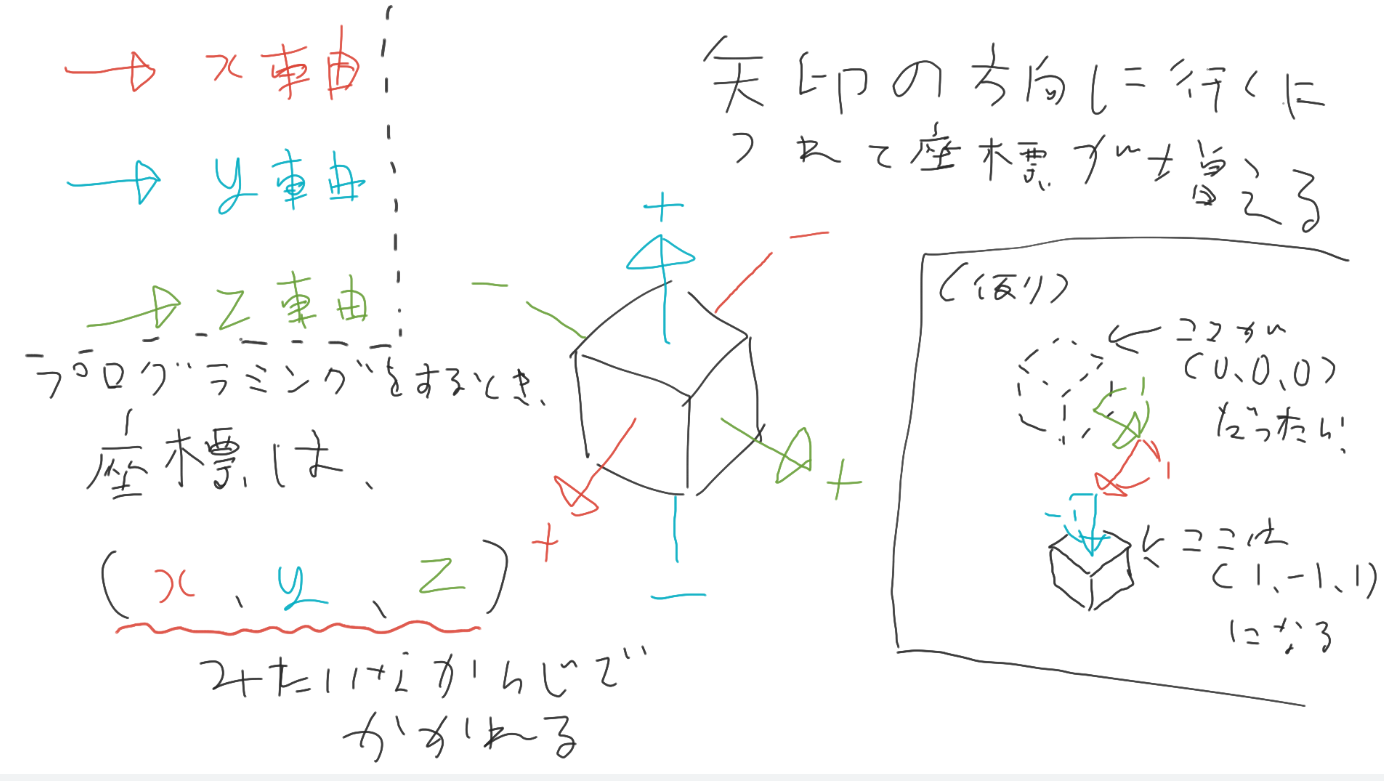 x軸
y軸
z軸
プログラミングをするとき、
座標は、
(x、y、z)
みたいなかんじで
かかれる
矢印の方向に行くに
つれて座標が増える
+
-
-
+
+
-
(仮り)
ココが
(0、0、0)
だったら
1
1
-1
ココは
(1、-1、1)
になる